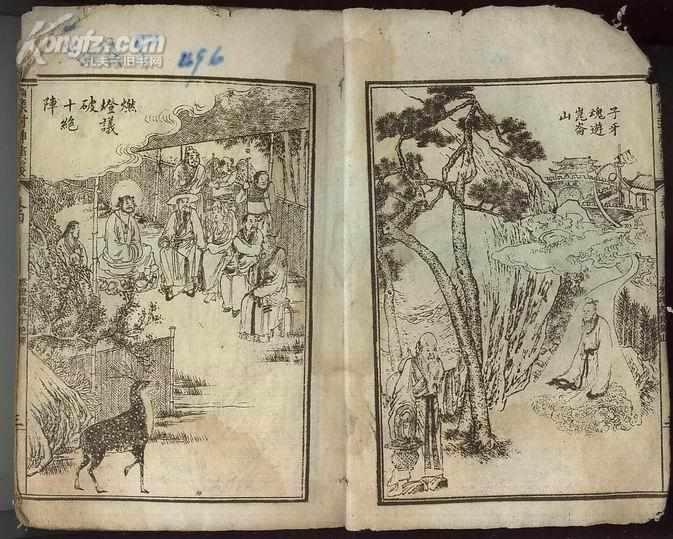 Kongfz.com
孔夫子旧书网
496
子牙
魂遊
崑崙
山
燃
燈議
破
十絕
陣
三